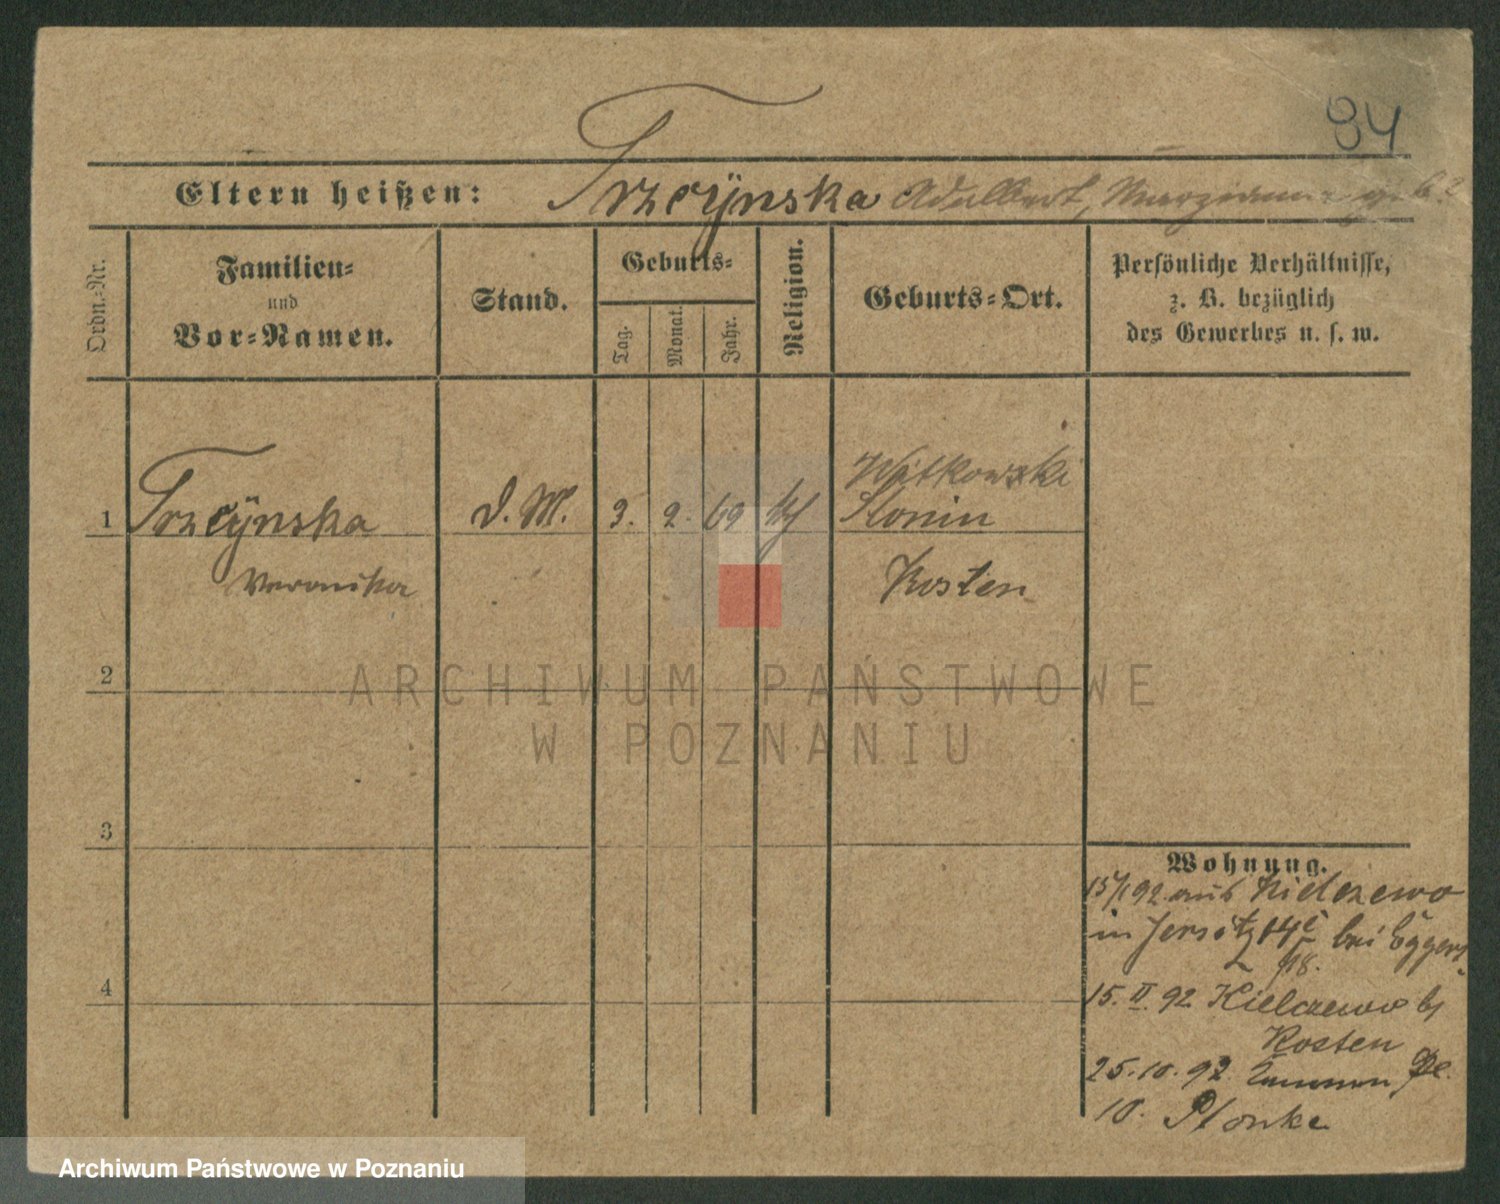 84
Eltern heißen: Trzcÿnska Adalbert, geb.?
Ordn.-Nr.
Familien-
und
Vor-Namen.
Stand.
Geburts-
Tag.
Monat.
Jahr.
Religion.
Geburts-Ort.
Persönliche Verhältnisse,
z. B. bezüglich
des Gewerbes u. s. w.
Witkowski
1 Trzcÿnska d. M. 3. 2. 69 Slonin
Veronika Kosten
2
ARCHIWUM PAŃSTWOWE
W POZNANIU
3
Wohnung.
15/1 92. aus Kielczewo
in Jersitz bei Eggers
18.
4
15. II. 92 Kielczewo b/
Kosten
25.10.92
10. Plonke
Archiwum Państwowe w Poznaniu